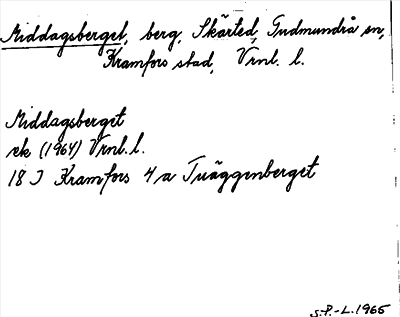 Middagsberget, berg, Skärted, Gudmundrå sn,
Kramfors stad, Vrnl. l.
Middagsberget
ek (1964) Vrnl. l.
18 J Kramfors 4 a Tväggenberget
S.P.-L. 1965